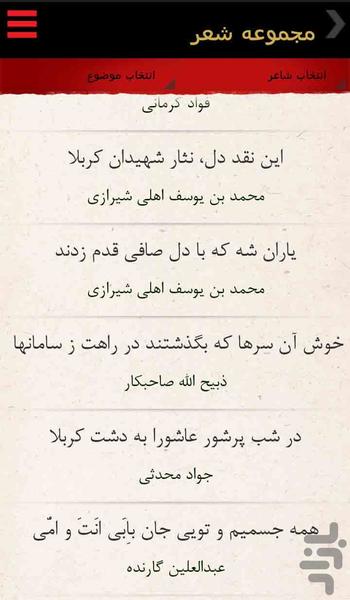 مجموعه شعر
انتخاب شاعر
انتخاب موضوع
فواد کرمانی
این نقد دل، نثار شهیدان کربلا
محمد بن یوسف اهلی شیرازی
یاران شه که با دل صافی قدم زدند
محمد بن یوسف اهلی شیرازی
خوش آن سِرها که بگذشتند در راهت ز سامانها
ذبیح الله صاحبکار
در شب پرشور عاشورا به دشت کربلا
جواد محدثی
همه جسمیم و تویی جان بِاَبی انَتَ و امّی
عبدالعلین گارنده
بازار